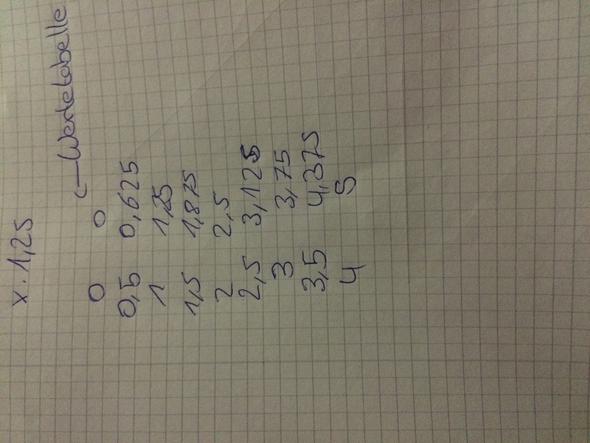 x · 1,25
0 0 ← Wertetabelle
0,5 0,625
1 1,25
1,5 1,875
2 2,5
2,5 3,125
3 3,75
3,5 4,375
4 5